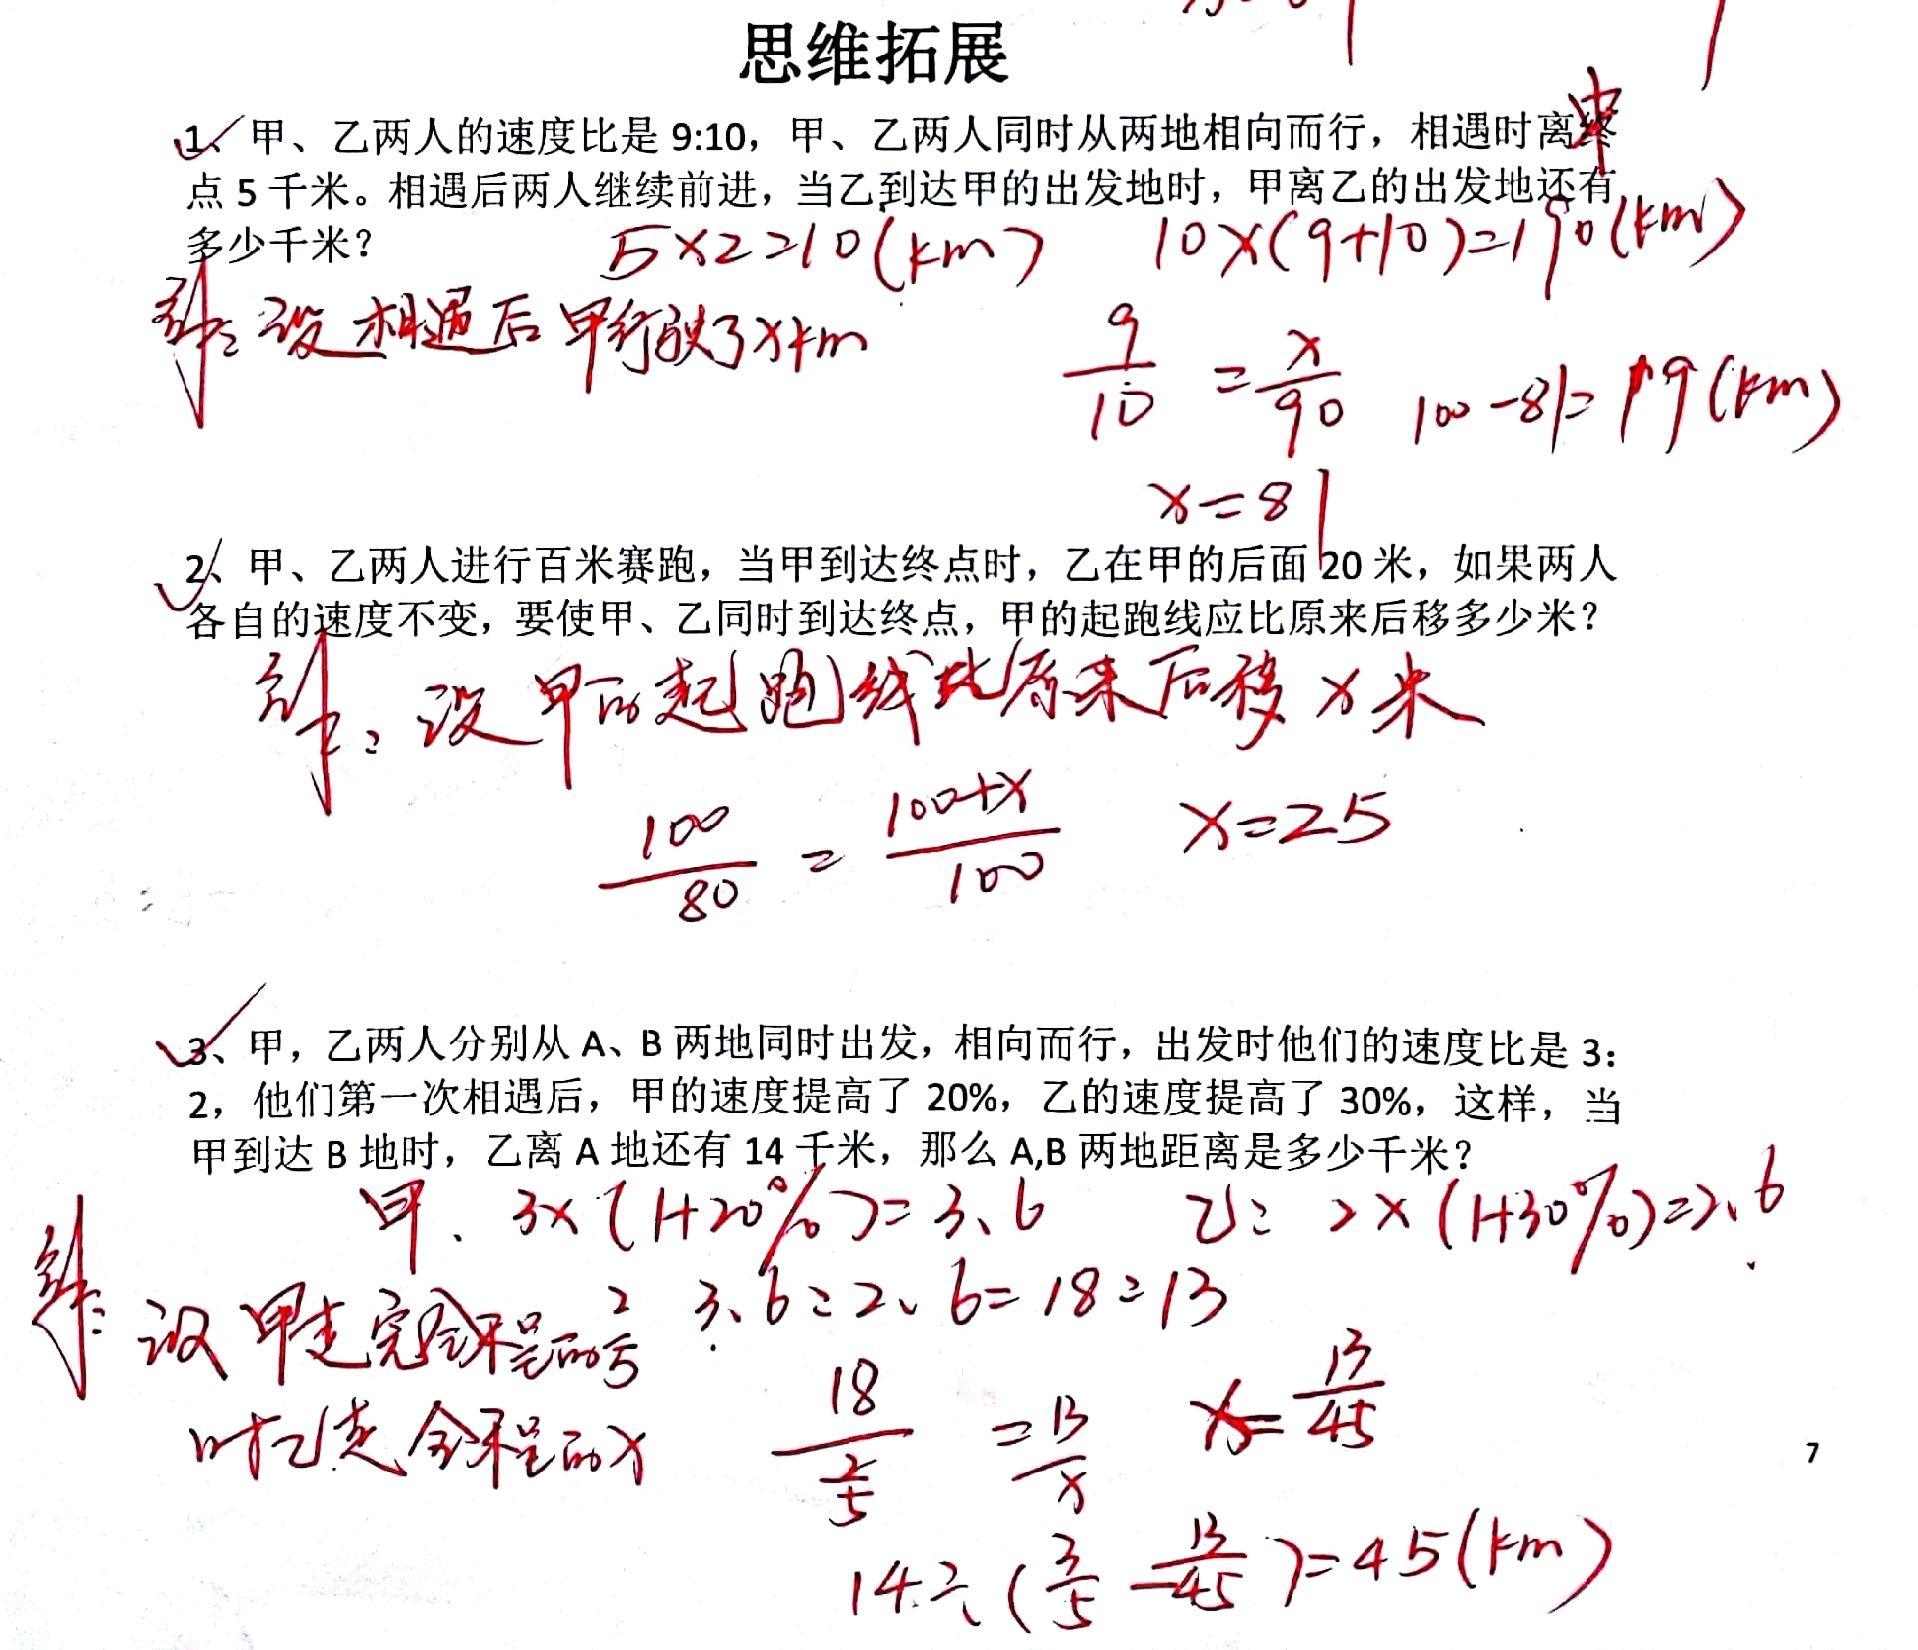 思维拓展
1、甲、乙两人的速度比是 9:10，甲、乙两人同时从两地相向而行，相遇时离终中
点 5 千米。相遇后两人继续前进，当乙到达甲的出发地时，甲离乙的出发地还有
多少千米？
5×2=10(km) 10×(9+10)=190(km)
解：设相遇后甲行驶了xkm
9/10 = x/90 100-81=19(km)
x=81
2、甲、乙两人进行百米赛跑，当甲到达终点时，乙在甲的后面 20 米，如果两人
各自的速度不变，要使甲、乙同时到达终点，甲的起跑线应比原来后移多少米？
解：设甲的起跑线比原来后移x米
100/80 = 100+x/100 x=25
3、甲，乙两人分别从 A、B 两地同时出发，相向而行，出发时他们的速度比是 3：
2，他们第一次相遇后，甲的速度提高了 20%，乙的速度提高了 30%，这样，当
甲到达 B 地时，乙离 A 地还有 14 千米，那么 A,B 两地距离是多少千米？
甲：3×(1+20%)=3.6 乙：2×(1+30%)=2.6
3.6:2.6=18:13
解：设甲走完全程的2/5
时乙走全程的x
18/(2/5) = 13/x x=13/45
7
14÷(3/5-13/45)=45(km)